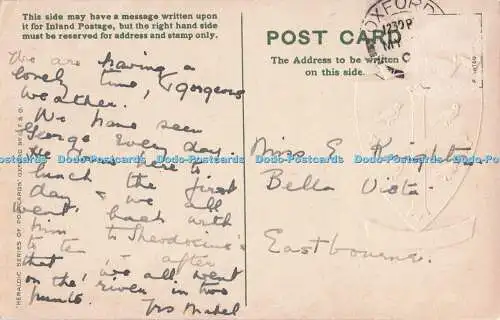 This side may have a message written upon
it for Inland Postage, but the right hand side
must be reserved for address and stamp only.
We are having a
lovely time, & gorgeous
weather.
We have seen
George every day.
He came here to
lunch the first
day & we all
went back with
him to
to tea after
that we all went
on the river in two
punts. Yrs Mabel
POST CARD
The Address to be written
on this side.
OXFORD
1230P
MY
Miss E Knight
Bella Vista.
Eastbourne.
"HERALDIC SERIES OF POSTCARDS" OXFORD
Dodo-Postcards Dodo-Postcards Dodo-Postcards Dodo-Postcards Dodo-Postcards Dodo-Postcards